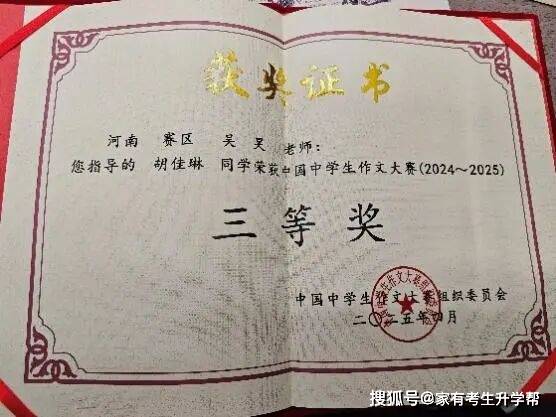 获奖证书
河南 赛区 吴昊 老师:
您指导的 胡佳琳 同学荣获中国中学生作文大赛(2024～2025)
三等奖
中国中学生作文大赛组织委员会
二〇二五年四月
搜狐号@家有考生升学帮